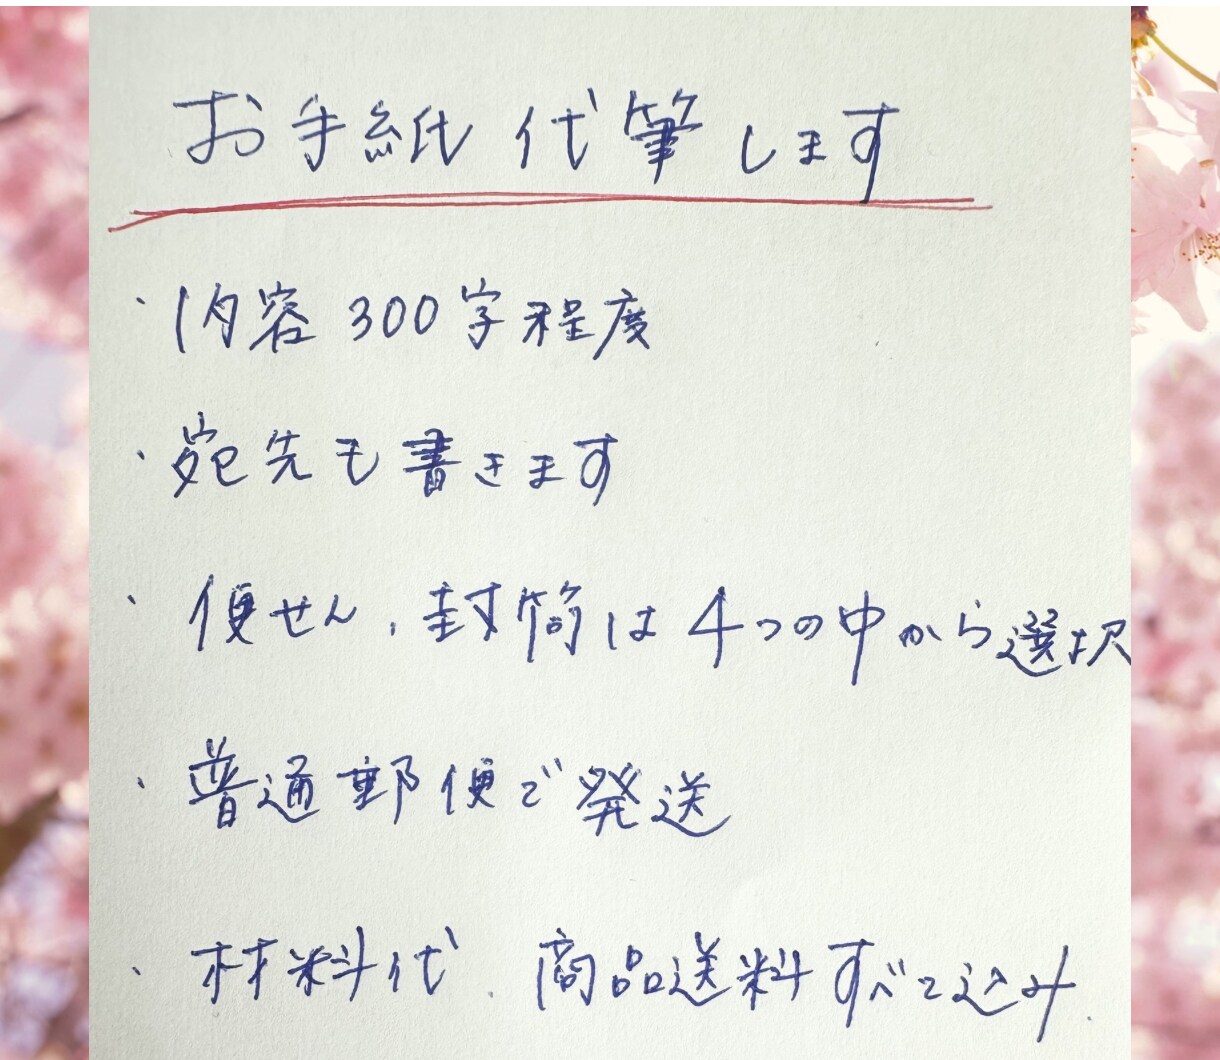 お手紙 代筆します
・内容 300字程度
・宛先も書きます
・便せん、封筒は4つの中から選択
・普通郵便で発送
・材料代、商品送料すべて込み.